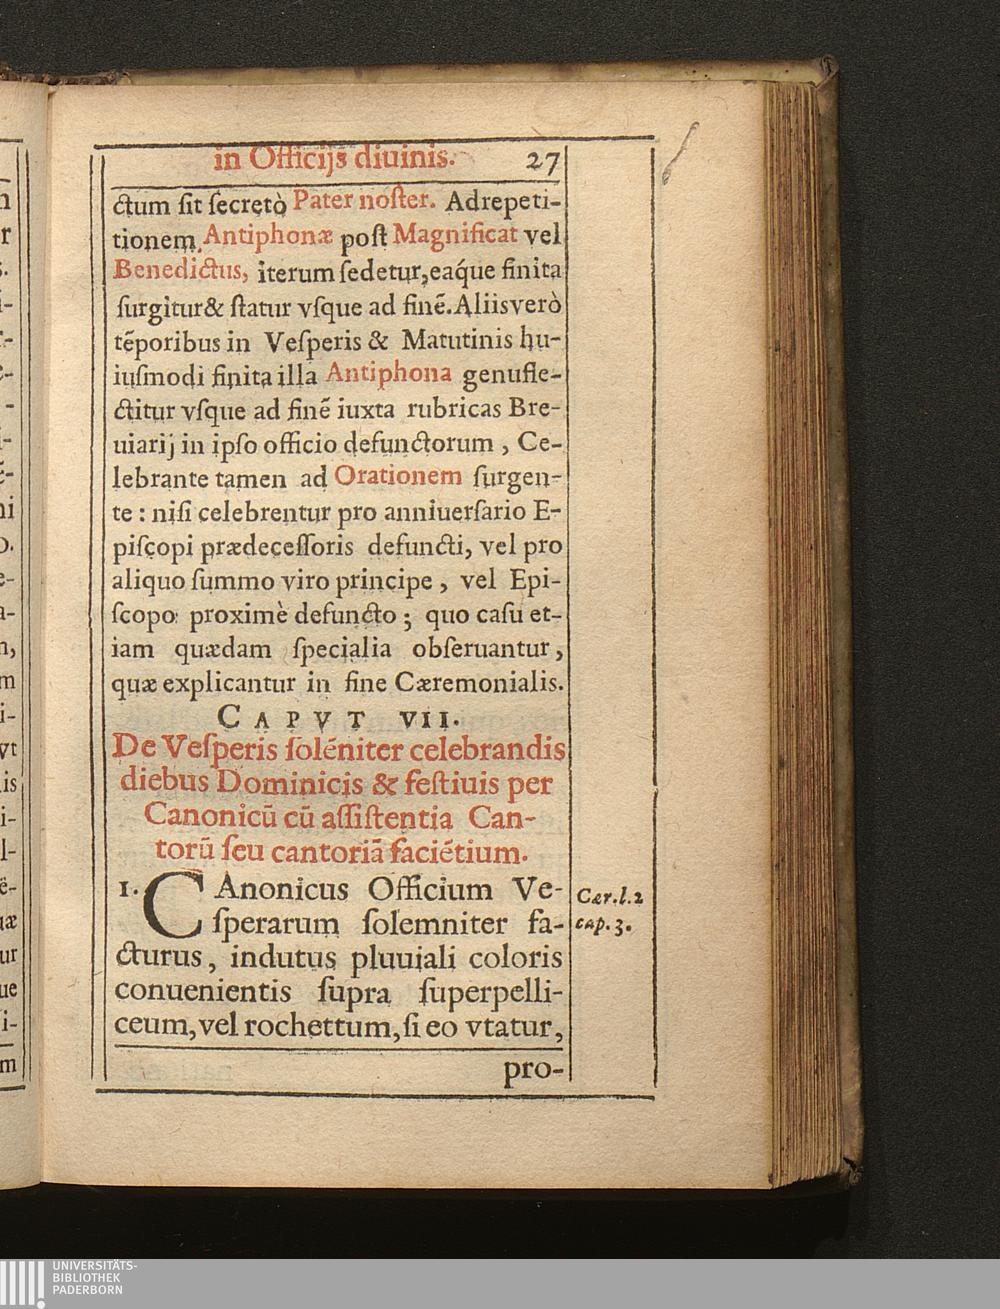 in Officijs diuinis. 27
ctum ſit ſecretò Pater noſter. Adrepeti-
tionem Antiphonæ poſt Magnificat vel
Benedictus, iterum ſedetur, eaq́ue finita
ſurgitur & ſtatur vſque ad finē. Aliis verò
tēporibus in Veſperis & Matutinis hu-
iuſmodi finita illa Antiphona genufle-
ctitur vſque ad finē iuxta rubricas Bre-
uiarij in ipſo officio defunctorum, Ce-
lebrante tamen ad Orationem ſurgen-
te: niſi celebrentur pro anniuerſario E-
piſcopi prædeceſſoris defuncti, vel pro
aliquo ſummo viro principe, vel Epi-
ſcopo proximè defuncto; quo caſu et-
iam quædam ſpecialia obſeruantur,
quæ explicantur in fine Cæremonialis.
CAPVT VII.
De Veſperis ſolēniter celebrandis
diebus Dominicis & feſtiuis per
Canonicū cū aſſiſtentia Can-
torū ſeu cantoriā faciētium.
1. CAnonicus Officium Ve-
ſperarum ſolemniter fa-
cturus, indutus pluuiali coloris
conuenientis ſupra ſuperpelli-
ceum, vel rochettum, ſi eo vtatur,
pro-
Cær.l.2
cap.3.
UNIVERSITÄTS-
BIBLIOTHEK
PADERBORN